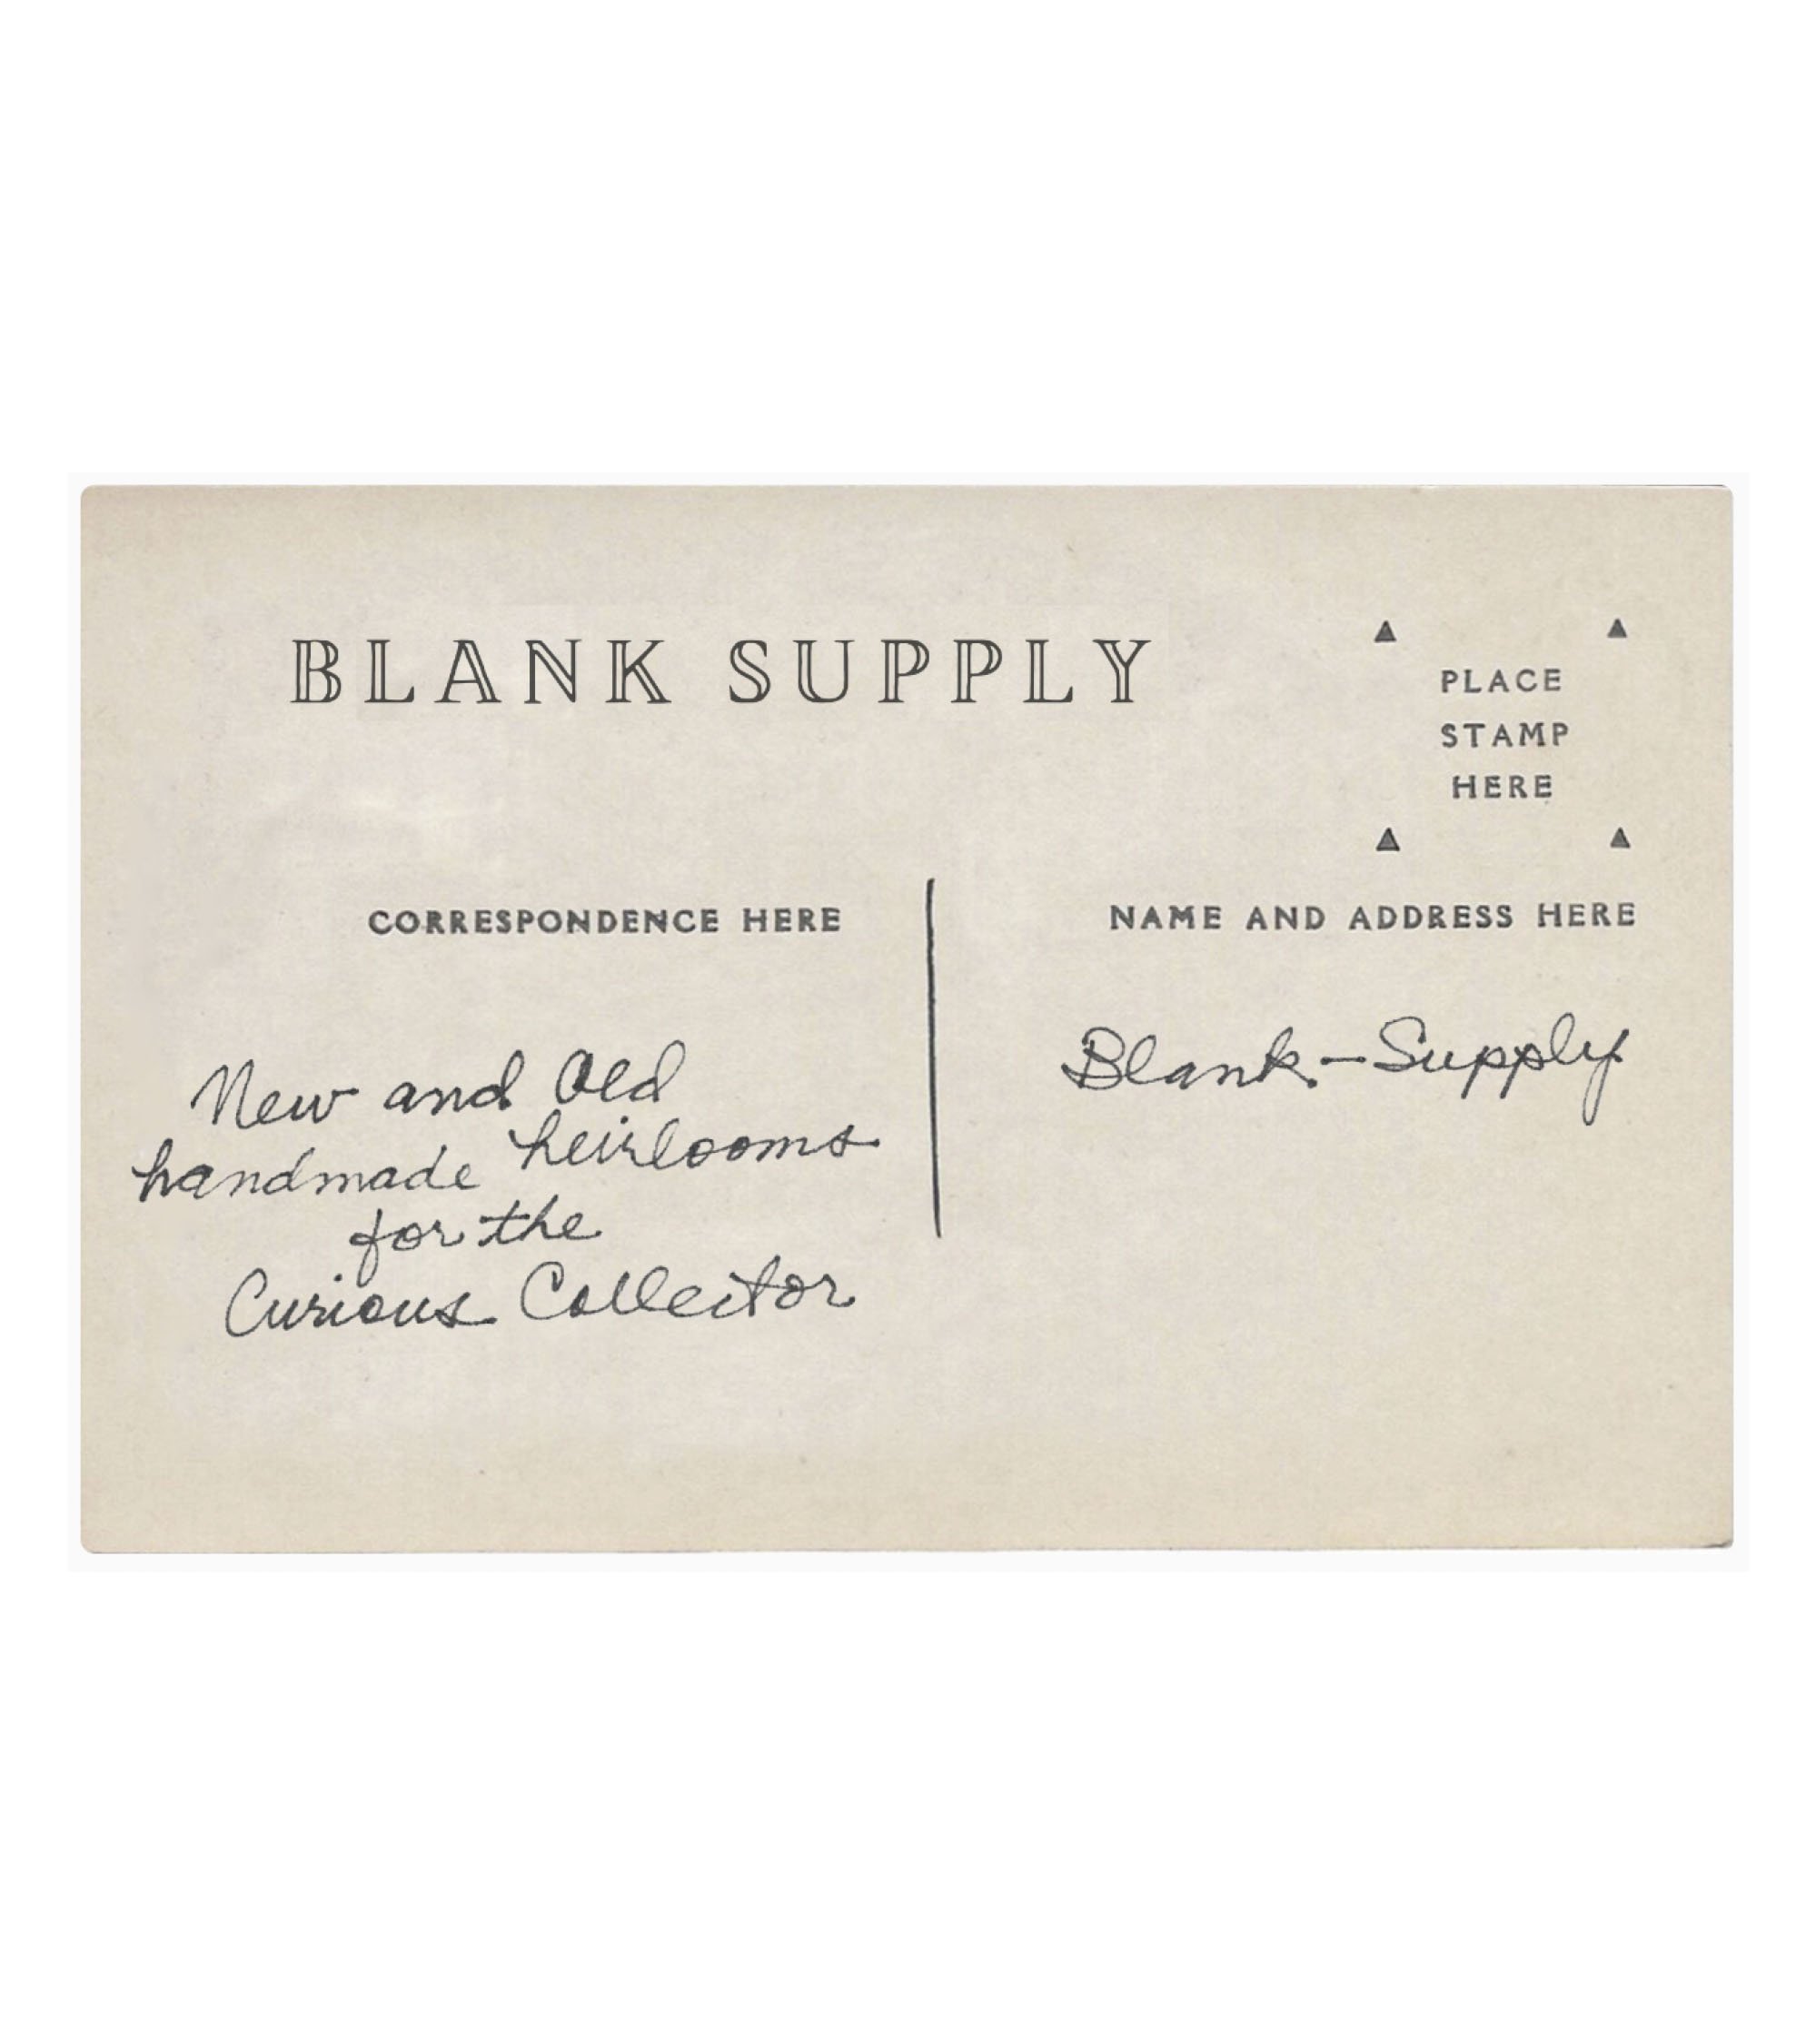 BLANK SUPPLY
PLACE
STAMP
HERE
CORRESPONDENCE HERE
NAME AND ADDRESS HERE
New and Old
handmade heirlooms
for the
Curious Collector
Blank-Supply